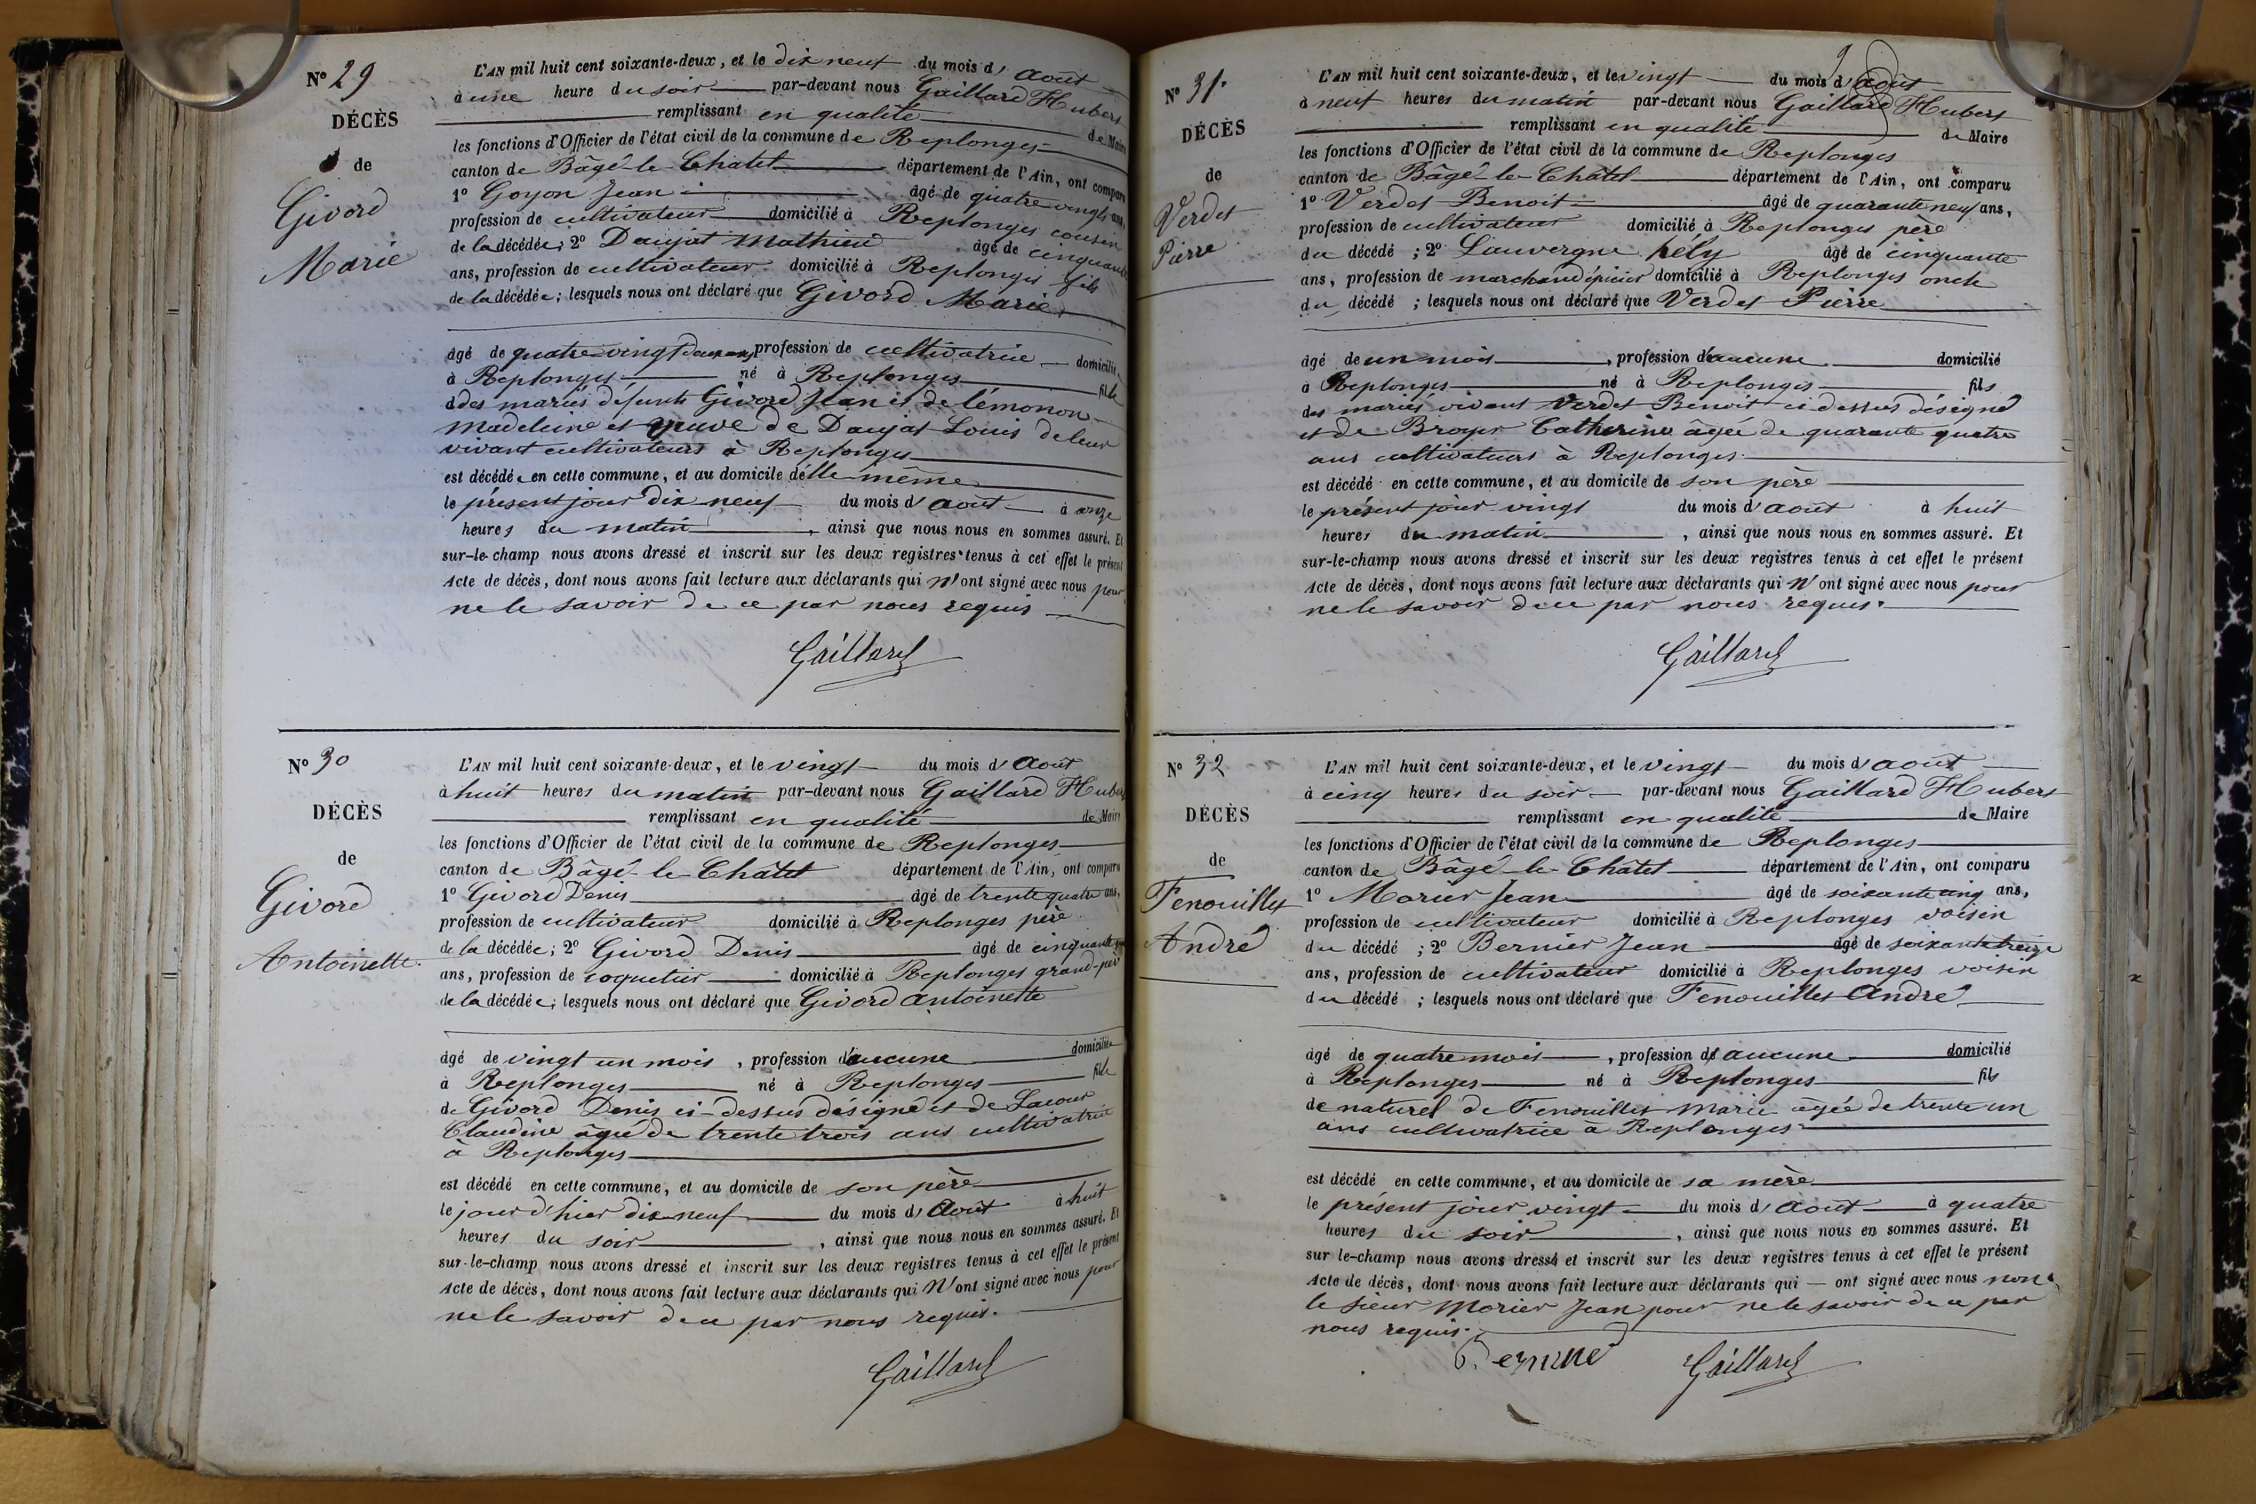 N° 29
DÉCÈS
de
Givord
Marie
L'AN mil huit cent soixante-deux, et le dix neuf du mois d'août
à une heure du soir par-devant nous Gaillard Hubert
remplissant en qualité de Maire
les fonctions d'Officier de l'état civil de la commune de Replonges
canton de Bâgé-le-Chatel département de l'Ain, ont comparu
1° Goyon Jean âgé de quatre vingts ans,
profession de cultivateur domicilié à Replonges cousin
de la décédée; 2° Daujat Mathieu âgé de cinquante
ans, profession de cultivateur domicilié à Replonges fils
de la décédée; lesquels nous ont déclaré que Givord Marie
âgé de quatre vingt profession de cultivatrice domiciliée
à Replonges né à Replonges fille
des mariés défunts Givord Jean et de Lémonon
Madeleine et veuve de Daujat Louis de leur
vivant cultivateurs à Replonges
est décédée en cette commune, et au domicile d'elle même
le présent jour dix neuf du mois d'août à onze
heures du matin, ainsi que nous nous en sommes assuré. Et
sur-le-champ nous avons dressé et inscrit sur les deux registres tenus à cet effet le présent
Acte de décès, dont nous avons fait lecture aux déclarants qui n'ont signé avec nous pour
ne le savoir de ce par nous requis
Gaillard
N° 30
DÉCÈS
de
Givord
Antoinette
L'AN mil huit cent soixante-deux, et le vingt du mois d'août
à huit heures du matin par-devant nous Gaillard Hubert
remplissant en qualité de Maire
les fonctions d'Officier de l'état civil de la commune de Replonges
canton de Bâgé-le-Châtel département de l'Ain, ont comparu
1° Givord Denis âgé de trente quatre ans,
profession de cultivateur domicilié à Replonges père
de la décédée; 2° Givord Denis âgé de cinquante
ans, profession de coquetier domicilié à Replonges grand-père
de la décédée; lesquels nous ont déclaré que Givord Antoinette
âgé de vingt un mois, profession d'aucune domiciliée
à Replonges né à Replonges fille
de Givord Denis ci-dessus désigné et de Lacour
Claudine âgée de trente trois ans cultivatrice
à Replonges
est décédé en cette commune, et au domicile de son père
le jour d'hier dix neuf du mois d'Août à huit
heures du soir, ainsi que nous nous en sommes assuré. Et
sur-le-champ nous avons dressé et inscrit sur les deux registres tenus à cet effet le présent
Acte de décès, dont nous avons fait lecture aux déclarants qui n'ont signé avec nous pour
ne le savoir de ce par nous requis.
Gaillard
N° 31.
DÉCÈS
de
Verdet
Pierre
L'AN mil huit cent soixante-deux, et le vingt du mois d'août
à neuf heures du matin par-devant nous Gaillard Hubert
remplissant en qualité de Maire
les fonctions d'Officier de l'état civil de la commune de Replonges
canton de Bâgé-le-Châtel département de l'Ain, ont comparu
1° Verdet Benoit âgé de quarante neuf ans,
profession de cultivateur domicilié à Replonges père
du décédé; 2° Lauvergne âgé de cinquante
ans, profession de marchand épicier domicilié à Replonges oncle
du décédé; lesquels nous ont déclaré que Verdet Pierre
âgé de un mois, profession d'aucune domicilié
à Replonges né à Replonges fils
des mariés vivant Verdet Benoit ci dessus désigné
et de Broyer Catherine âgée de quarante quatre
ans cultivateurs à Replonges
est décédé en cette commune, et au domicile de son père
le présent jour vingt du mois d'août à huit
heures du matin, ainsi que nous nous en sommes assuré. Et
sur-le-champ nous avons dressé et inscrit sur les deux registres tenus à cet effet le présent
Acte de décès, dont nous avons fait lecture aux déclarants qui n'ont signé avec nous pour
ne le savoir de ce par nous requis.
Gaillard
N° 32
DÉCÈS
de
Fenouillet
André
L'AN mil huit cent soixante-deux, et le vingt du mois d'août
à cinq heures du soir par-devant nous Gaillard Hubert
remplissant en qualité de Maire
les fonctions d'Officier de l'état civil de la commune de Replonges
canton de Bâgé-le-Châtel département de l'Ain, ont comparu
1° Morier Jean âgé de soixante cinq ans,
profession de cultivateur domicilié à Replonges voisin
du décédé; 2° Bernier Jean âgé de soixante treize
ans, profession de cultivateur domicilié à Replonges voisin
du décédé; lesquels nous ont déclaré que Fenouillet André
âgé de quatre mois, profession d'aucune domicilié
à Replonges né à Replonges fils
de naturel de Fenouillet Marie âgée de trente un
ans cultivatrice à Replonges
est décédé en cette commune, et au domicile de sa mère
le présent jour vingt du mois d'août à quatre
heures du soir, ainsi que nous nous en sommes assuré. Et
sur le-champ nous avons dressé et inscrit sur les deux registres tenus à cet effet le présent
Acte de décès, dont nous avons fait lecture aux déclarants qui ont signé avec nous non
le sieur Morier Jean pour ne le savoir de ce par
nous requis.
Gaillard